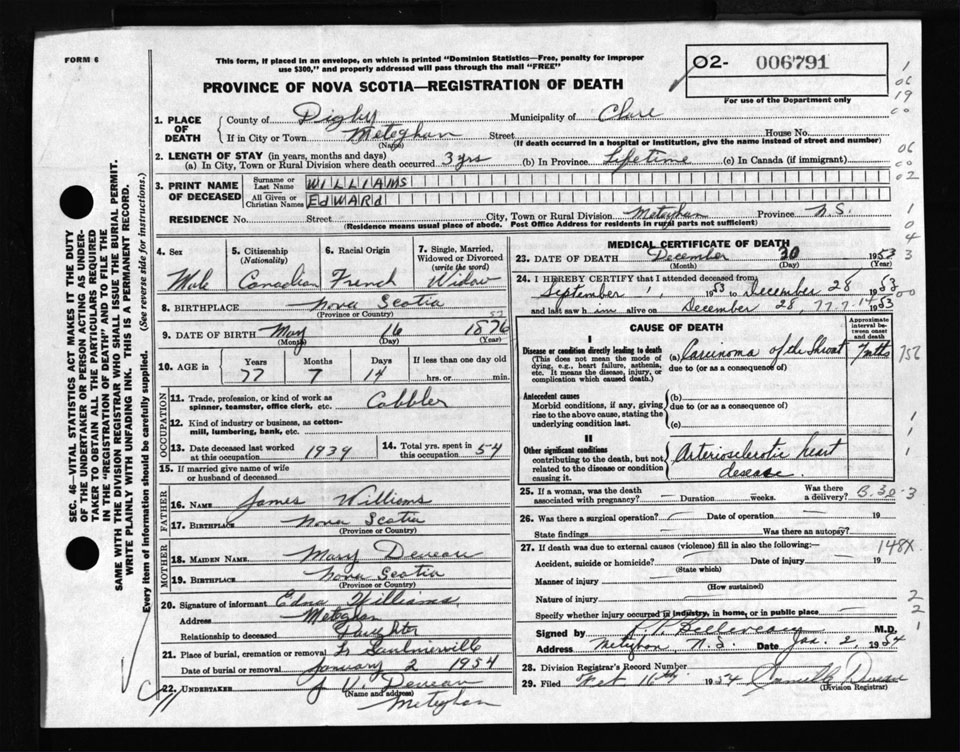 FORM 6
This form, if placed in an envelope, on which is printed "Dominion Statistics—Free, penalty for improper
use $300," and properly addressed will pass through the mail "FREE"
O2- 006791
For use of the Department only
PROVINCE OF NOVA SCOTIA—REGISTRATION OF DEATH
1. PLACE OF DEATH
County of Digby Municipality of Clare
If in City or Town Meteghan Street House No.
(Name) (If death occurred in a hospital or institution, give the name instead of street and number)
2. LENGTH OF STAY (in years, months and days)
(a) In City, Town or Rural Division where death occurred 3 yrs (b) In Province Lifetime (c) In Canada (if immigrant)
3. PRINT NAME OF DECEASED
Surname or Last Name WILLIAMS
All Given or Christian Names EdWARd
RESIDENCE No. Street City, Town or Rural Division Meteghan Province N.S.
(Residence means usual place of abode. Post Office Address for residents in rural parts not sufficient)
4. Sex Male
5. Citizenship (Nationality) Canadian
6. Racial Origin French
7. Single, Married, Widowed or Divorced (write the word) Widow
8. BIRTHPLACE Nova Scotia
(Province or Country)
9. DATE OF BIRTH May 16 1876
(Month) (Day) (Year)
10. AGE in Years 77 Months 7 Days 14 If less than one day old hrs. or min.
OCCUPATION
11. Trade, profession, or kind of work as spinner, teamster, office clerk, etc. Cobbler
12. Kind of industry or business, as cotton-mill, lumbering, bank, etc.
13. Date deceased last worked at this occupation 1939
14. Total yrs. spent in this occupation 54
15. If married give name of wife or husband of deceased
FATHER
16. NAME James Williams
17. BIRTHPLACE Nova Scotia
(Province or Country)
MOTHER
18. MAIDEN NAME Mary Deveau
19. BIRTHPLACE Nova Scotia
(Province or Country)
20. Signature of informant Edna Williams
Address Meteghan
Relationship to deceased Daughter
21. Place of burial, cremation or removal Saulnierville
Date of burial or removal January 2 1954
22. UNDERTAKER J V. Deveau
(Name and address)
Meteghan
MEDICAL CERTIFICATE OF DEATH
23. DATE OF DEATH December 30 1953
(Month) (Day) (Year)
24. I HEREBY CERTIFY that I attended deceased from
September 1, 1953 to December 28 1953
and last saw him alive on December 28, 77.7.14 1953
CAUSE OF DEATH
Approximate interval between onset and death
I
Disease or condition directly leading to death
(This does not mean the mode of dying, e.g., heart failure, asthenia, etc. It means the disease, injury, or complication which caused death.)
(a) Carcinoma of the throat 7 mths
due to (or as a consequence of)
Antecedent causes
Morbid conditions, if any, giving rise to the above cause, stating the underlying condition last.
(b)
due to (or as a consequence of)
(c)
II
Other significant conditions
contributing to the death, but not related to the disease or condition causing it.
Arteriosclerotic heart
desease.
25. If a woman, was the death associated with pregnancy? Duration weeks. Was there a delivery?
26. Was there a surgical operation? Date of operation 19
State findings Was there an autopsy?
27. If death was due to external causes (violence) fill in also the following:— 148X
Accident, suicide or homicide? Date of injury 19
(State which)
Manner of injury
(How sustained)
Nature of injury
Specify whether injury occurred in industry, in home, or in public place
Signed by M.D.
Address Meteghan, N.S. Date Jan. 2, 1954
28. Division Registrar's Record Number
29. Filed Feb 16th 1954
(Division Registrar)
SEC. 46—VITAL STATISTICS ACT MAKES IT THE DUTY
OF THE UNDERTAKER OR PERSON ACTING AS UNDER-
TAKER TO OBTAIN ALL THE PARTICULARS REQUIRED
IN THE "REGISTRATION OF DEATH" AND TO FILE THE
SAME WITH THE DIVISION REGISTRAR WHO SHALL ISSUE THE BURIAL PERMIT.
WRITE PLAINLY WITH UNFADING INK. THIS IS A PERMANENT RECORD.
Every item of information should be carefully supplied. (See reverse side for instructions.)